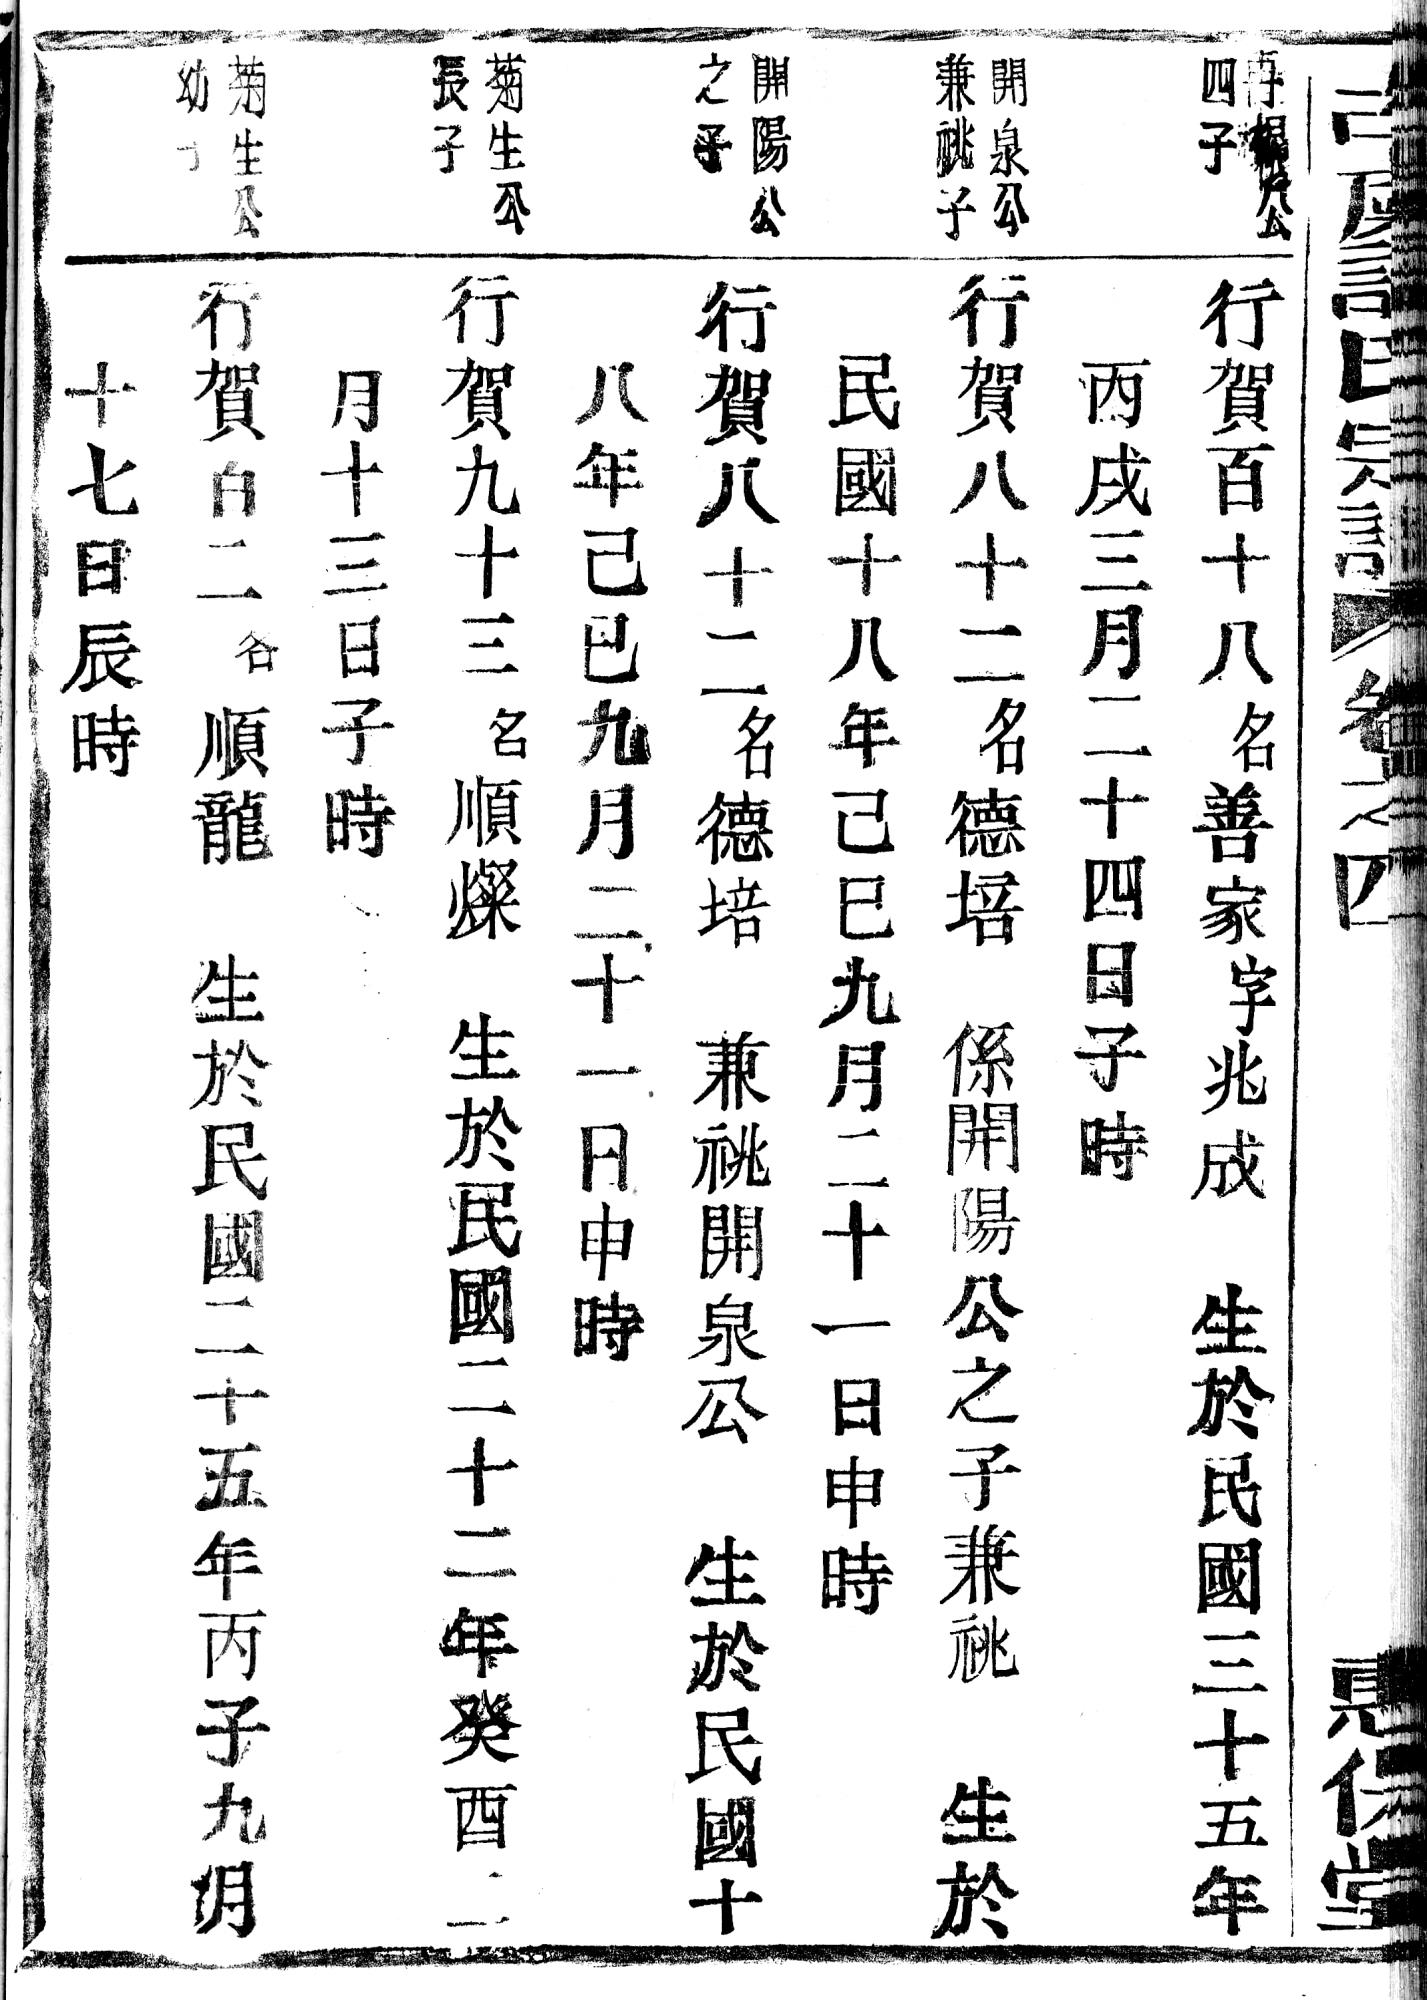 宗譜 卷之四
再 公
四子
行賀百十八名善家字兆成 生於民國三十五年
丙戌三月二十四日子時
開泉公
兼祧子
行賀八十二名德培 係開陽公之子兼祧 生於
民國十八年己巳九月二十一日申時
開陽公
之子
行賀八十二名德培 兼祧開泉公 生於民國十
八年己巳九月二十一日申時
菊生公
長子
行賀九十三名順燦 生於民國二十二年癸酉二
月十三日子時
菊生公
幼子
行賀百二名順龍 生於民國二十五年丙子九月
十七日辰時